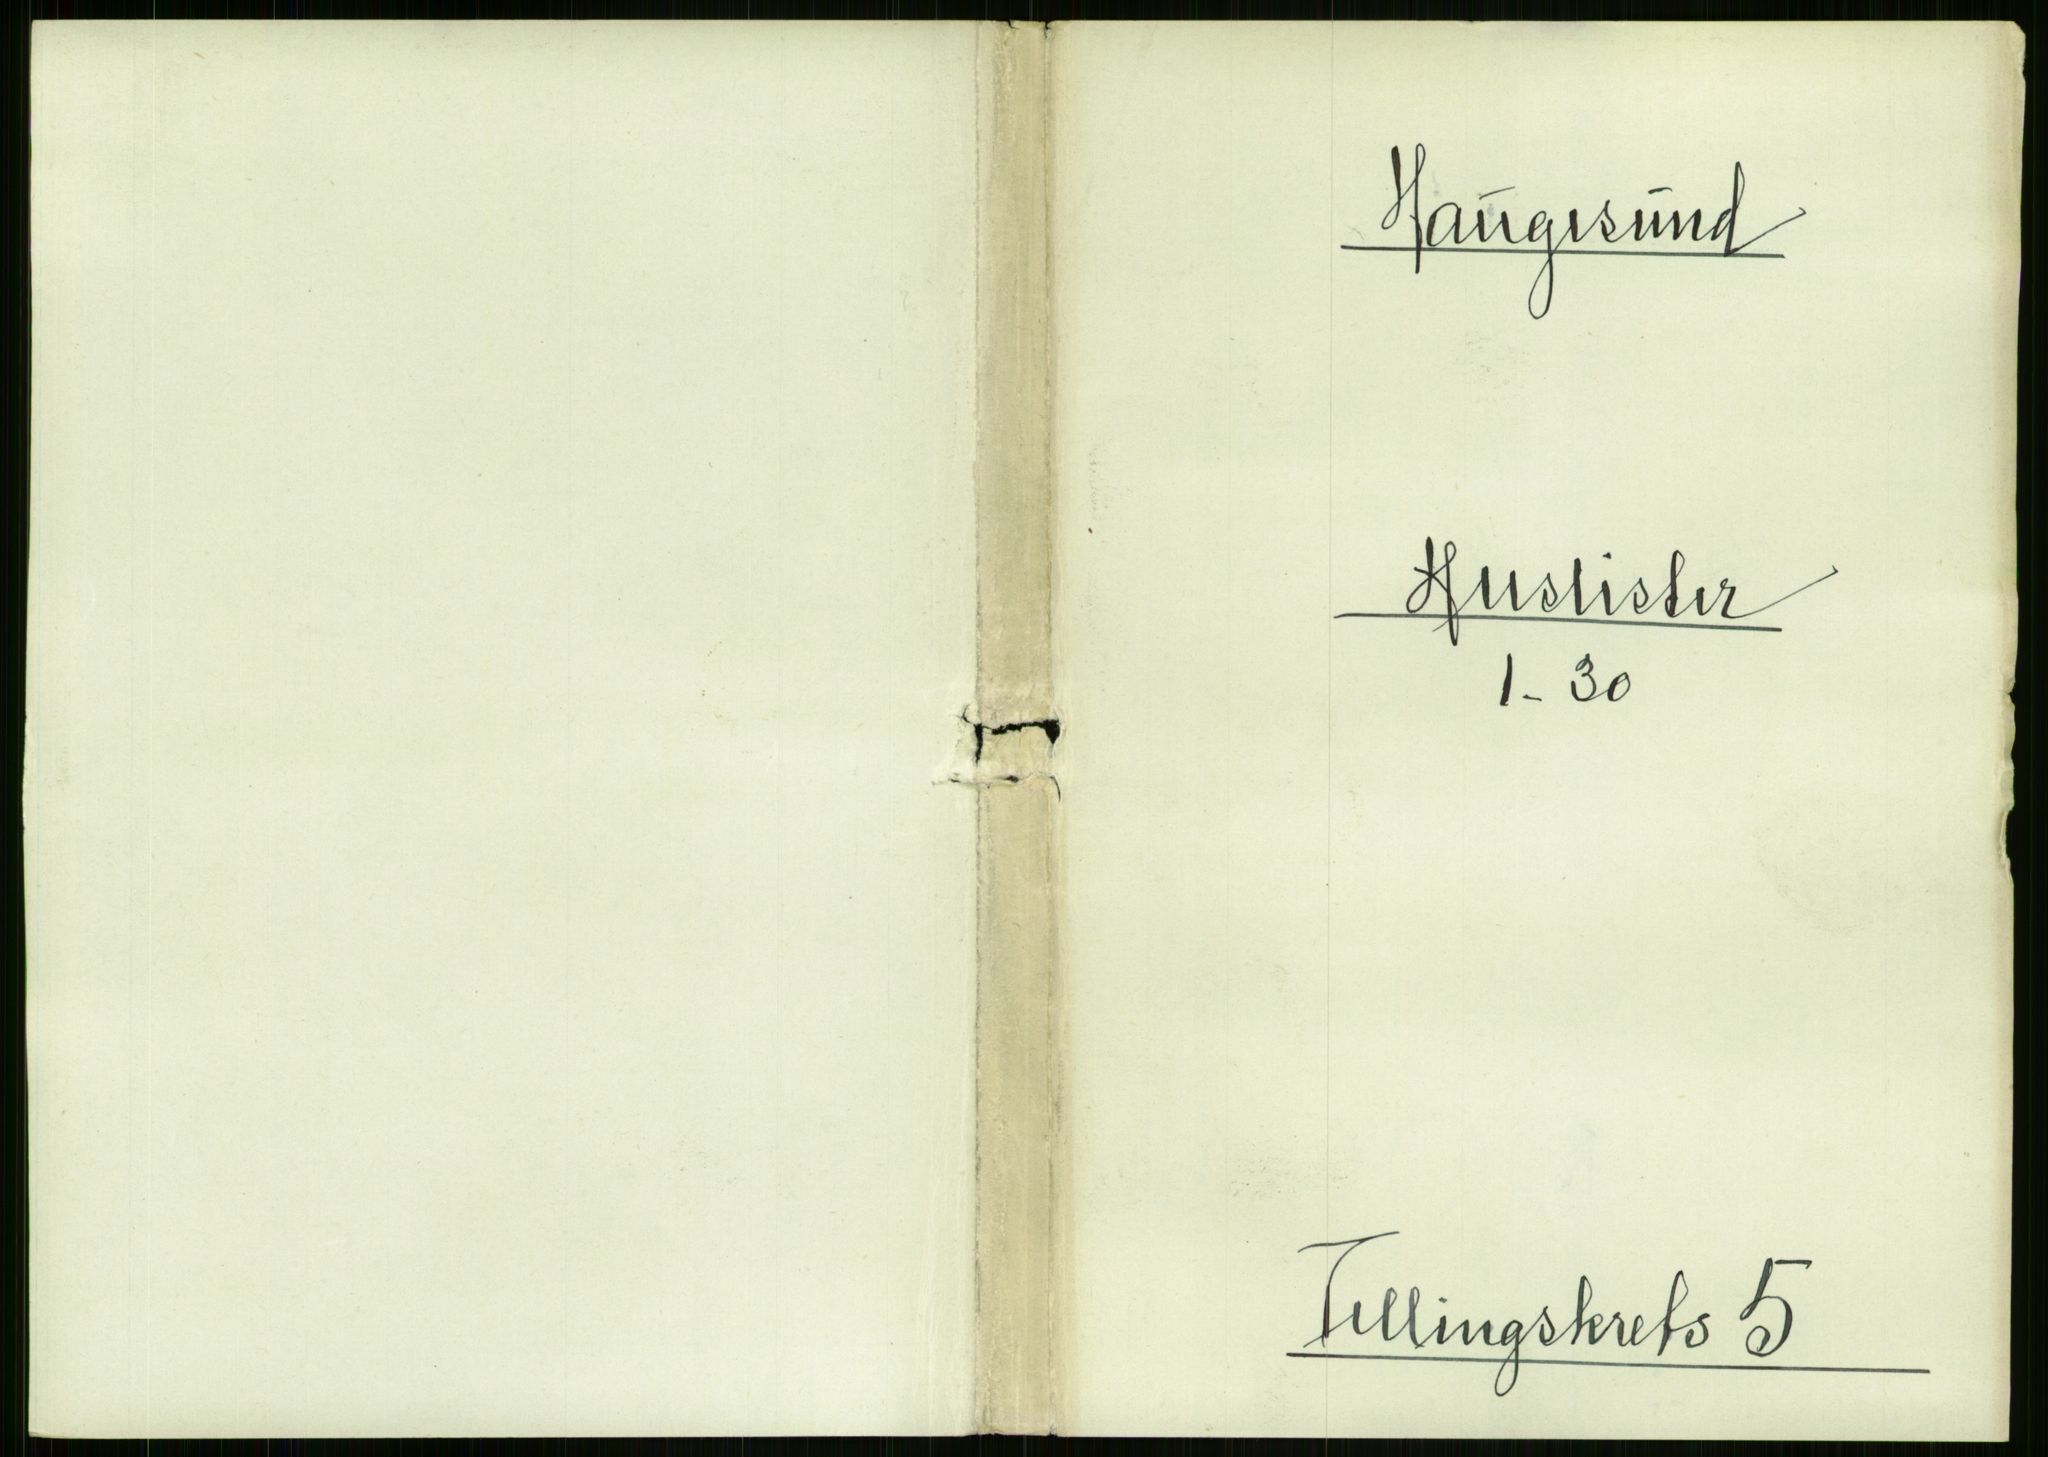 Haugesund
Huslister
1-30
Tellingskrets 5